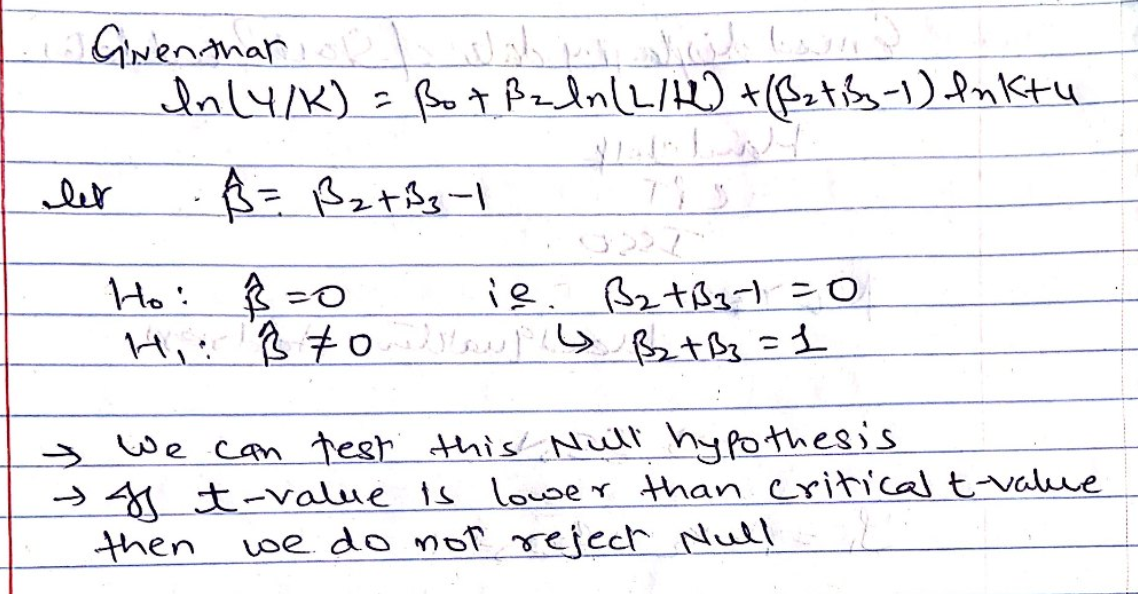 Given that
ln(Y/K) = β₀ + β₂ ln(L/K) + (β₂+β₃-1) ln K + u
let β̂ = β₂+β₃-1
H₀: β̂ = 0 i.e. β₂+β₃-1 = 0
H₁: β̂ ≠ 0 ↳ β₂+β₃ = 1
→ We can test this Null hypothesis
→ If t-value is lower than critical t-value
then we do not reject Null